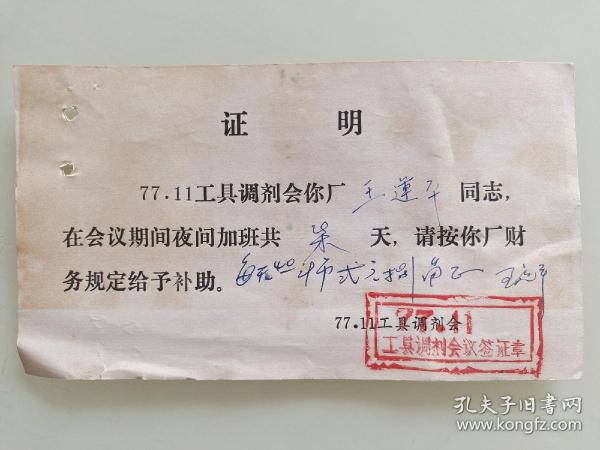 证 明
77.11工具调剂会你厂 王莲平 同志，
在会议期间夜间加班共 柒 天，请按你厂财
务规定给予补助。
77.11工具调剂会
77.11
工具调剂会议签证章
孔夫子旧书网
www.kongfz.com